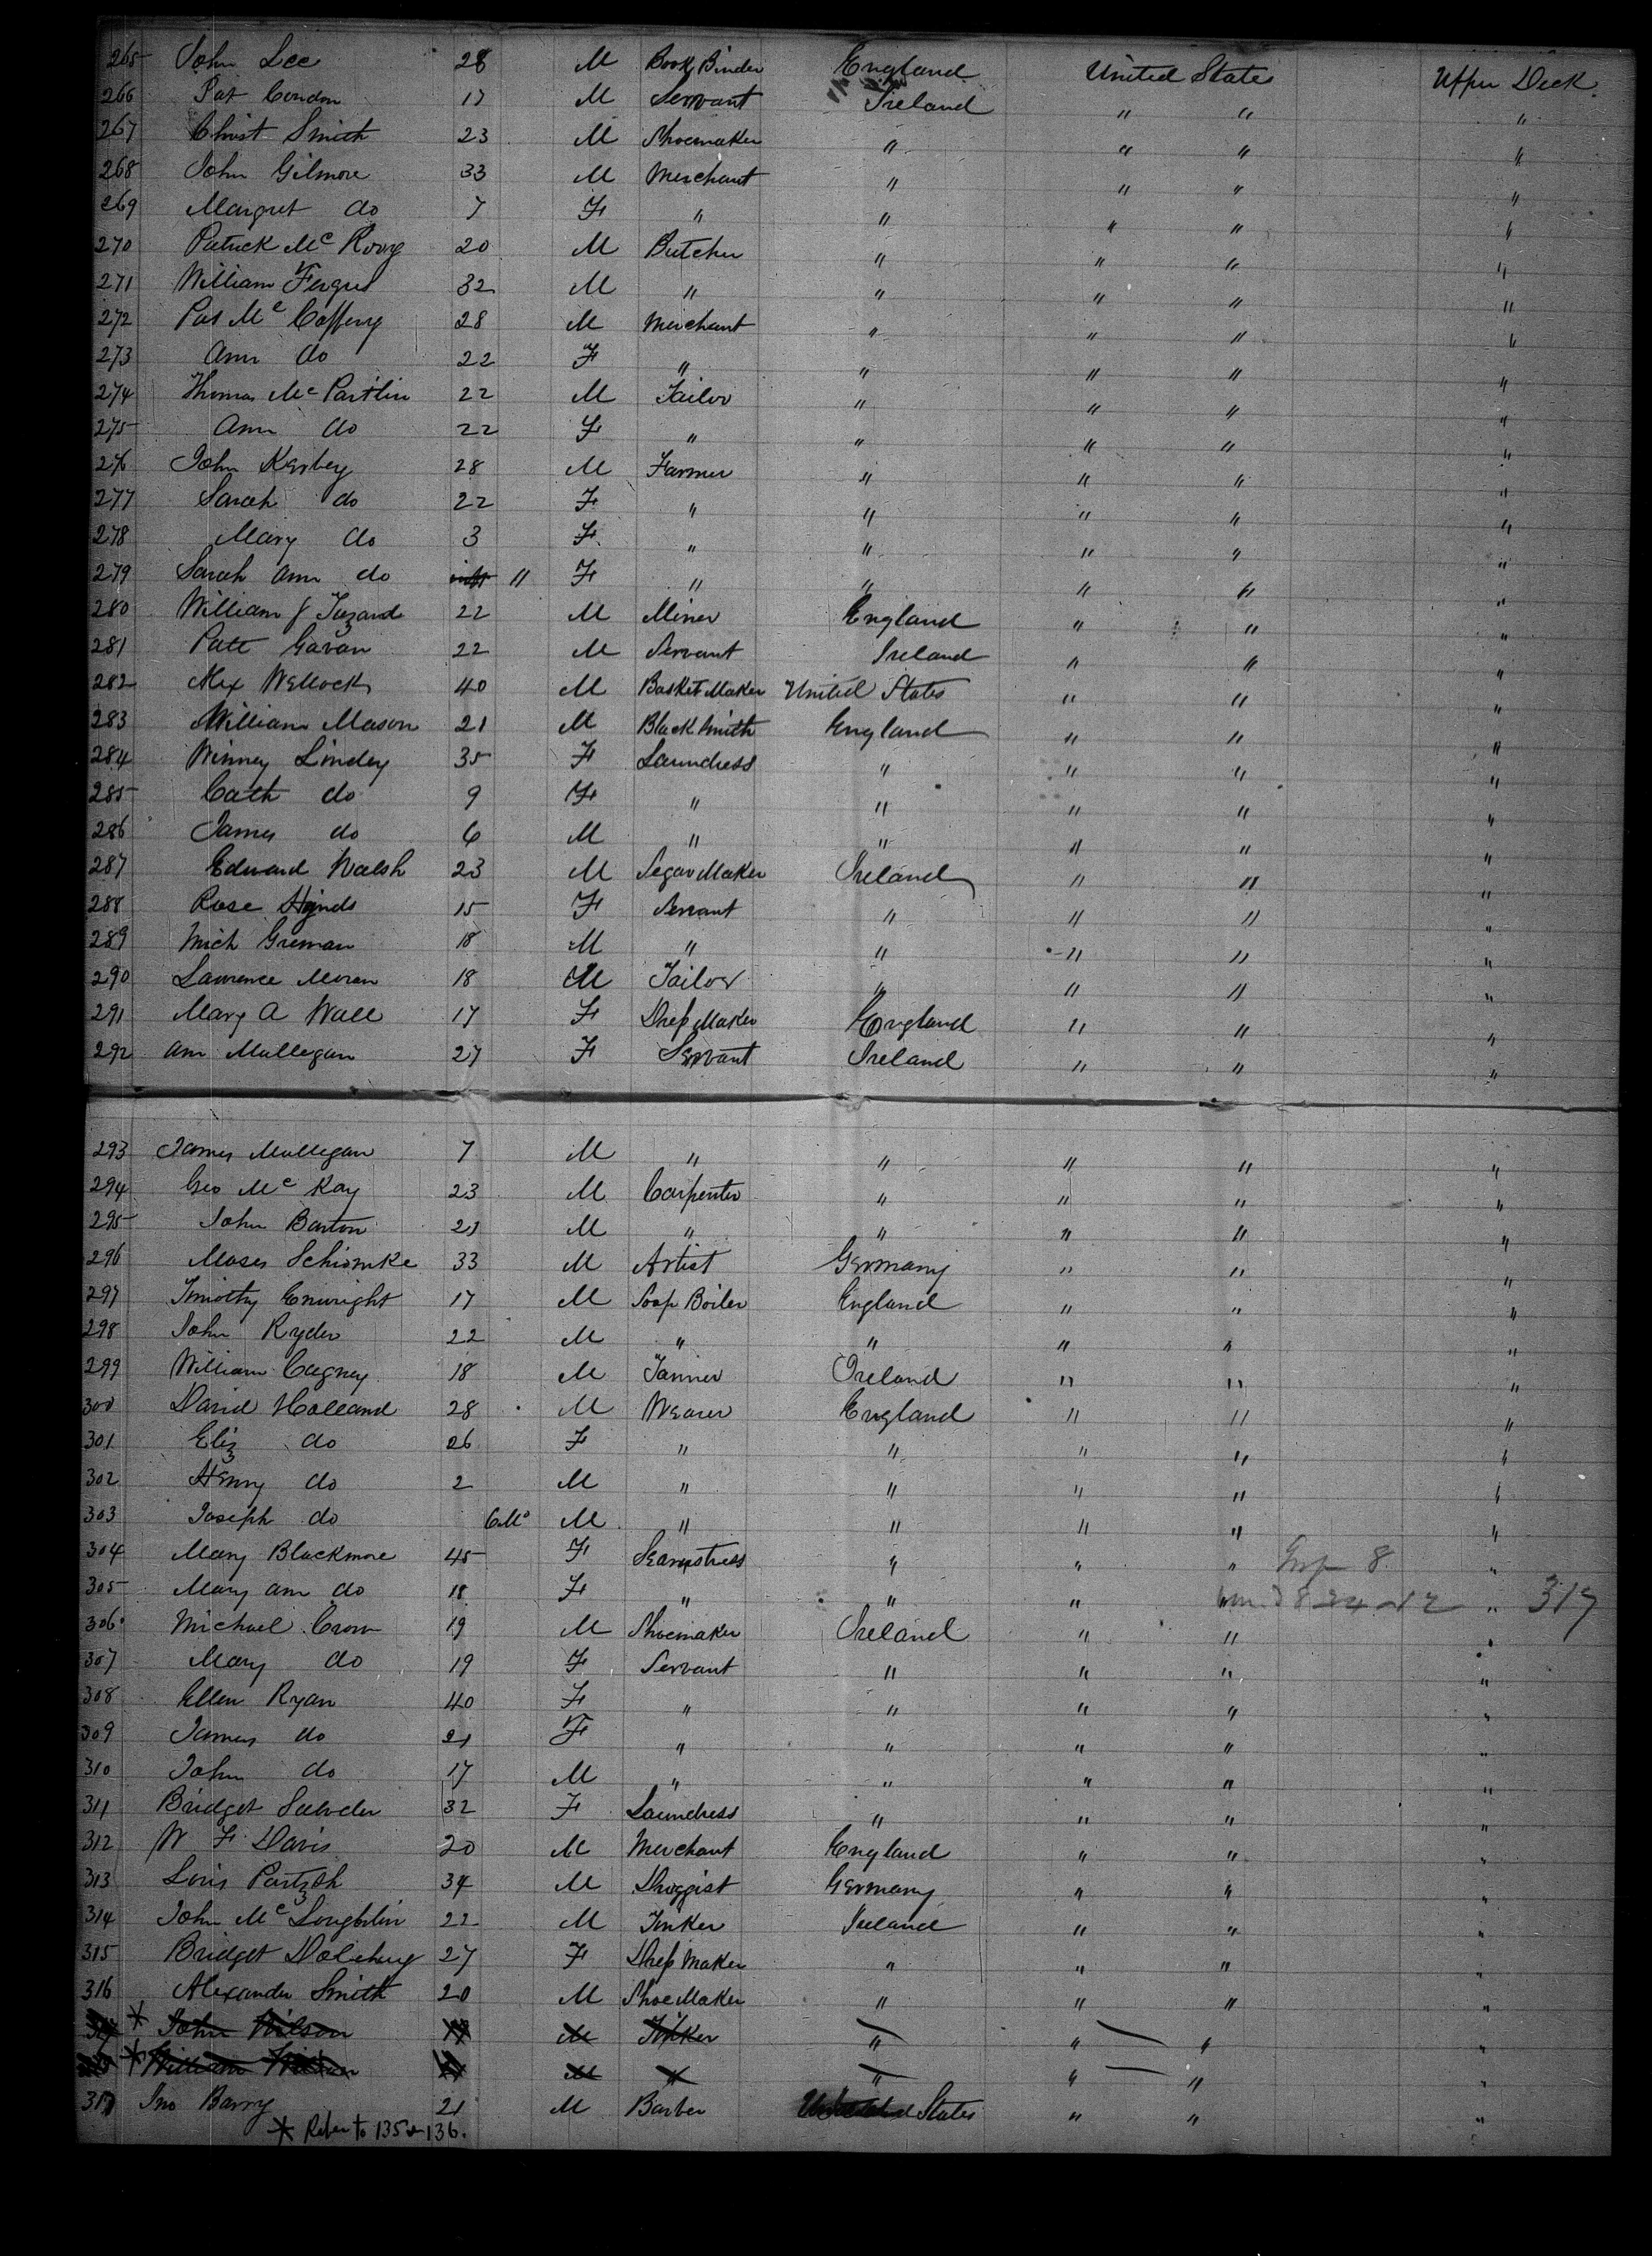 265 John Lee 28 M Book Binder England United States Upper Deck
266 Pat Condon 17 M Servant Ireland " " "
267 Christ Smith 23 M Shoemaker " " " "
268 John Gilmore 33 M Merchant " " " "
269 Margret do 7 F " " " " "
270 Patrick Mc 20 M Butcher " " " "
271 William Fergus 32 M " " " " "
272 Pat Mc Caffery 28 M Merchant " " " "
273 Ann do 22 F " " " " "
274 Thomas Mc Partlin 22 M Tailor " " " "
275 Ann do 22 F " " " " "
276 John Kerbey 28 M Farmer " " " "
277 Sarah do 22 F " " " " "
278 Mary do 3 F " " " " "
279 Sarah Ann do inft " F " " " " "
280 William J Tuzard 22 M Miner England " " "
281 Patt Gavan 22 M Servant Ireland " " "
282 Alex Wellock 40 M Basket Maker United States " " "
283 William Mason 21 M Black Smith England " " "
284 Winney Lindey 35 F Laundress " " " "
285 Cath do 9 F " " " " "
286 James do 6 M " " " " "
287 Edward Walsh 23 M Segar Maker Ireland " " "
288 Rose Hynds 15 F Servant " " " "
289 Mich Greman 18 M " " " " "
290 Lawrence Moran 18 M Tailor " " " "
291 Mary A Wall 17 F Dress Maker England " " "
292 Ann Mullegan 27 F Servant Ireland " " "
293 James Mullegan 7 M " " " " "
294 Geo Mc Kay 23 M Carpenter " " " "
295 John Barton 21 M " " " " "
296 Moses Schiomke 33 M Artist Germany " " "
297 Timothy Enwright 17 M Soap Boiler England " " "
298 John Ryder 22 M " " " " "
299 William Cagney 18 M Tanner Ireland " " "
300 David Holland 28 M Weaver England " " "
301 Eliz do 26 F " " " " "
302 Henry do 2 M " " " " "
303 Joseph do 6 Mo M " " " " "
304 Mary Blackmore 45 F Seamstress " " " Grp 8 "
305 Mary Ann do 18 F " " " " 8 24 - 12 " 317
306 Michael Crow 19 M Shoemaker Ireland " " "
307 Mary do 19 F Servant " " " "
308 Ellen Ryan 40 F " " " " "
309 James do 21 F " " " " "
310 John do 17 M " " " " "
311 Bridget 32 F Laundress " " " "
312 W F Davis 20 M Merchant England " " "
313 Loris Partzsh 34 M Druggist Germany " " "
314 John Mc Loughlin 22 M Tinker Ireland " " "
315 Bridget 27 F Dress Maker " " " "
316 Alexander Smith 20 M Shoe Maker " " " "
* John Wilson M Tinker " " " "
* William Wilson M " " " " "
317 Jno Barry 21 M Barber United States " " "
* Refer to 135 & 136.